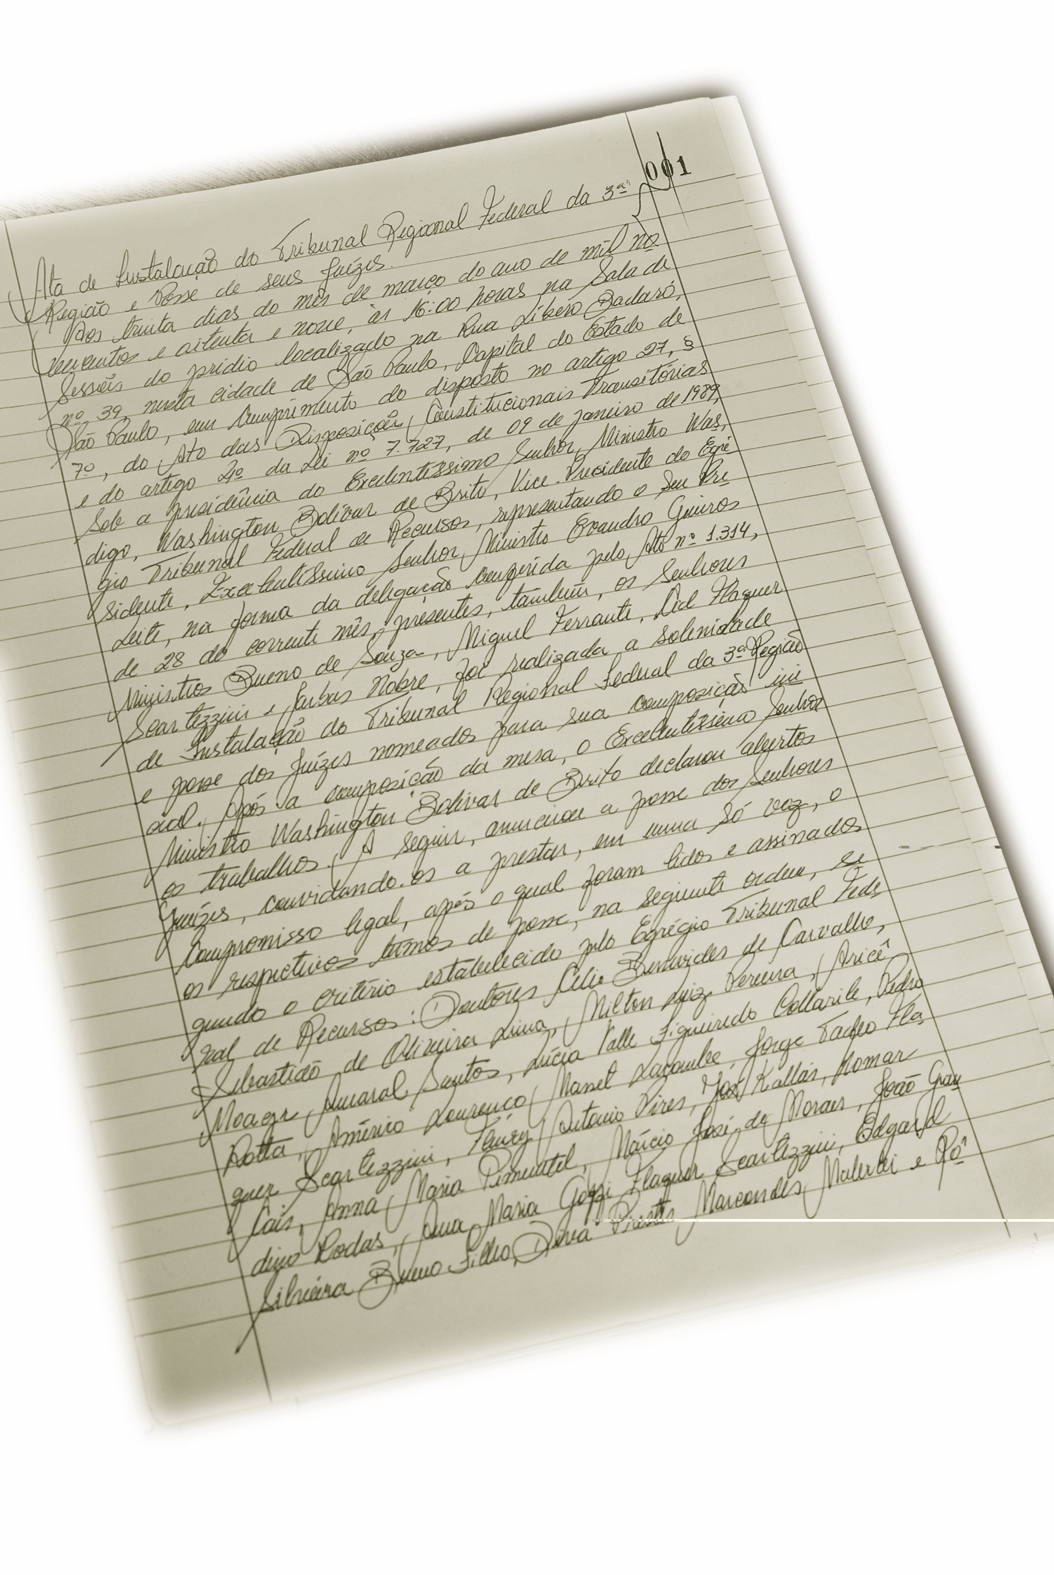 001
Ata de Instalação do Tribunal Regional Federal da 3ª
Região e Posse de seus Juízes.
Aos trinta dias do mês de março do ano de mil no
vecentos e oitenta e nove, às 16:00 horas na Sala de
Sessões do prédio localizado na Rua Líbero Badaró,
nº 39, nesta cidade de São Paulo, Capital do Estado de
São Paulo, em cumprimento do disposto no artigo 27, §
7º, do Ato das Disposições Constitucionais Transitórias
e do artigo 4º da Lei nº 7.727, de 09 de janeiro de 1989,
sob a presidência do Excelentíssimo Senhor Ministro Was,
digo, Washington Bolívar de Brito, Vice-Presidente do Egré
gio Tribunal Federal de Recursos, representando o seu Pre
sidente, Excelentíssimo Senhor Ministro Evandro Gueiros
Leite, na forma da delegação conferida pelo Ato nº 1.314,
de 28 do corrente mês, presentes, também, os Senhores
Ministros Bueno de Souza, Miguel Ferrante, Cid Flaquer
Scartezzini e Jarbas Nobre, foi realizada a solenidade
de Instalação do Tribunal Regional Federal da 3ª Região
e posse dos Juízes nomeados para sua composição ini
cial. Após a composição da mesa, o Excelentíssimo Senhor
Ministro Washington Bolívar de Brito declarou abertos
os trabalhos. A seguir, anunciou a posse dos Senhores
Juízes, convidando-os a prestar, em uma só vez, o
compromisso legal, após o qual foram lidos e assinados
os respectivos termos de posse, na seguinte ordem, se
gundo o critério estabelecido pelo Egrégio Tribunal Fede
ral de Recursos: Doutores Célio Benevides de Carvalho,
Sebastião de Oliveira Lima, Milton Luiz Pereira, Aricê
Moacyr Amaral Santos, Lúcia Valle Figueiredo Collarile, Pedro
Rotta, Américo Lourenço Masset Lacombe, Jorge Tadeo Fla
quer Scartezzini, Fleury Antonio Pires, José Kallás, Homar
Cais, Anna Maria Pimentel, Márcio José de Moraes, João Gran
dino Rodas, Ana Maria Goffi Flaquer Scartezzini, Edgard
Silveira Bueno Filho, Diva Prestes Marcondes Malerbi e Rô